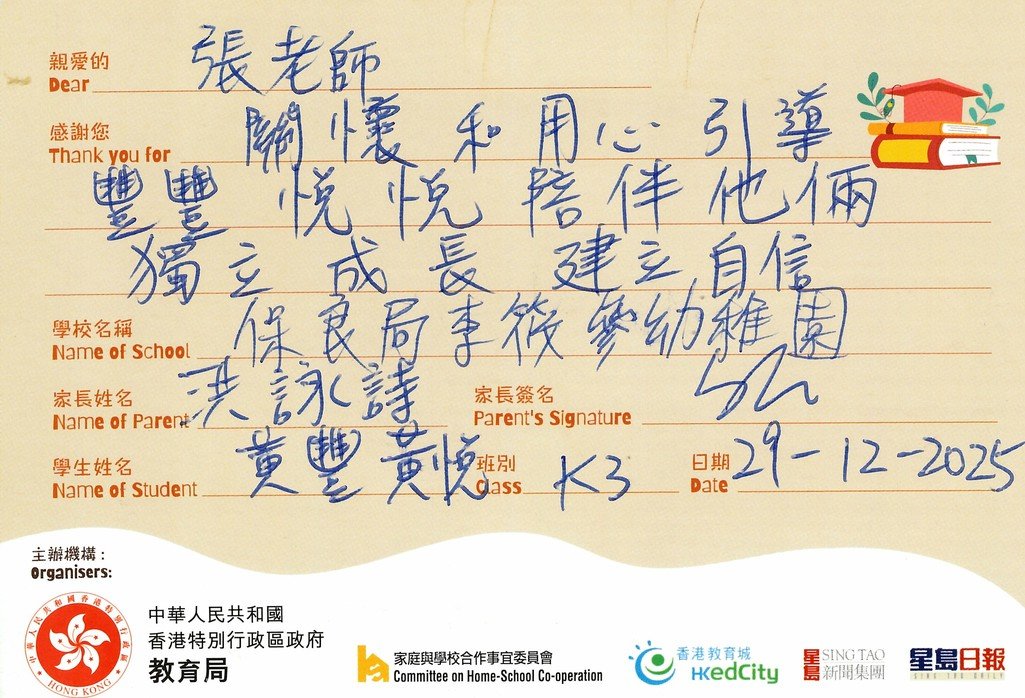 親愛的 張老師
Dear
感謝您 關懷和用心引導
Thank you for
豐豐悅悅陪伴他倆
獨立成長建立自信
學校名稱 保良局李筱參幼稚園
Name of School
家長姓名 洪詠詩 家長簽名
Name of Parent Parent's Signature
學生姓名 黃豐黃悅 班別 K3 日期 29-12-2025
Name of Student Class Date
主辦機構：
Organisers:
中華人民共和國香港特別行政區
HONG KONG
中華人民共和國
香港特別行政區政府
教育局
家庭與學校合作事宜委員會
Committee on Home-School Co-operation
香港教育城
HKedCity
星島 SING TAO
新聞集團
星島日報
SING TAO DAILY